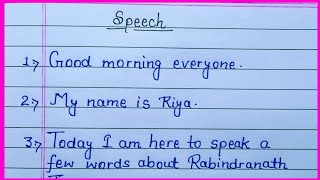 Speech
1) Good morning everyone.
2) My name is Riya.
3) Today I am here to speak a
few words about Rabindranath